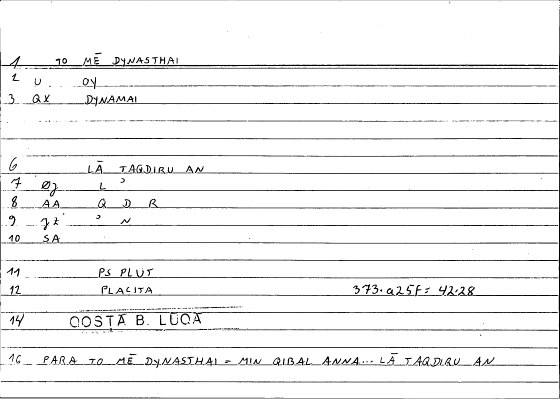 1 TO MĒ DYNASTHAI
2 U OY
3 QX DYNAMAI
6 LĀ TAQDIRU AN
7 ØJ L ʾ
8 AA Q D R
9 JZ ʾ N
10 SA
11 PS PLUT
12 PLACITA 373.a25f = 42.28
14 QOSTĀ B. LŪQĀ
16 PARA TO MĒ DYNASTHAI = MIN QIBAL ANNA... LĀ TAQDIRU AN